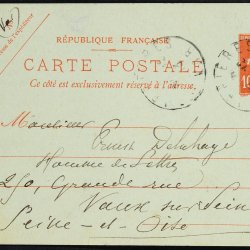 RÉPUBLIQUE FRANÇAISE
CARTE POSTALE
Ce côté est exclusivement réservé à l'adresse.
10
Monsieur
Ernest Delahaye
Homme de Lettres
250, Grande rue
Vaux sur Seine
Seine-et-Oise